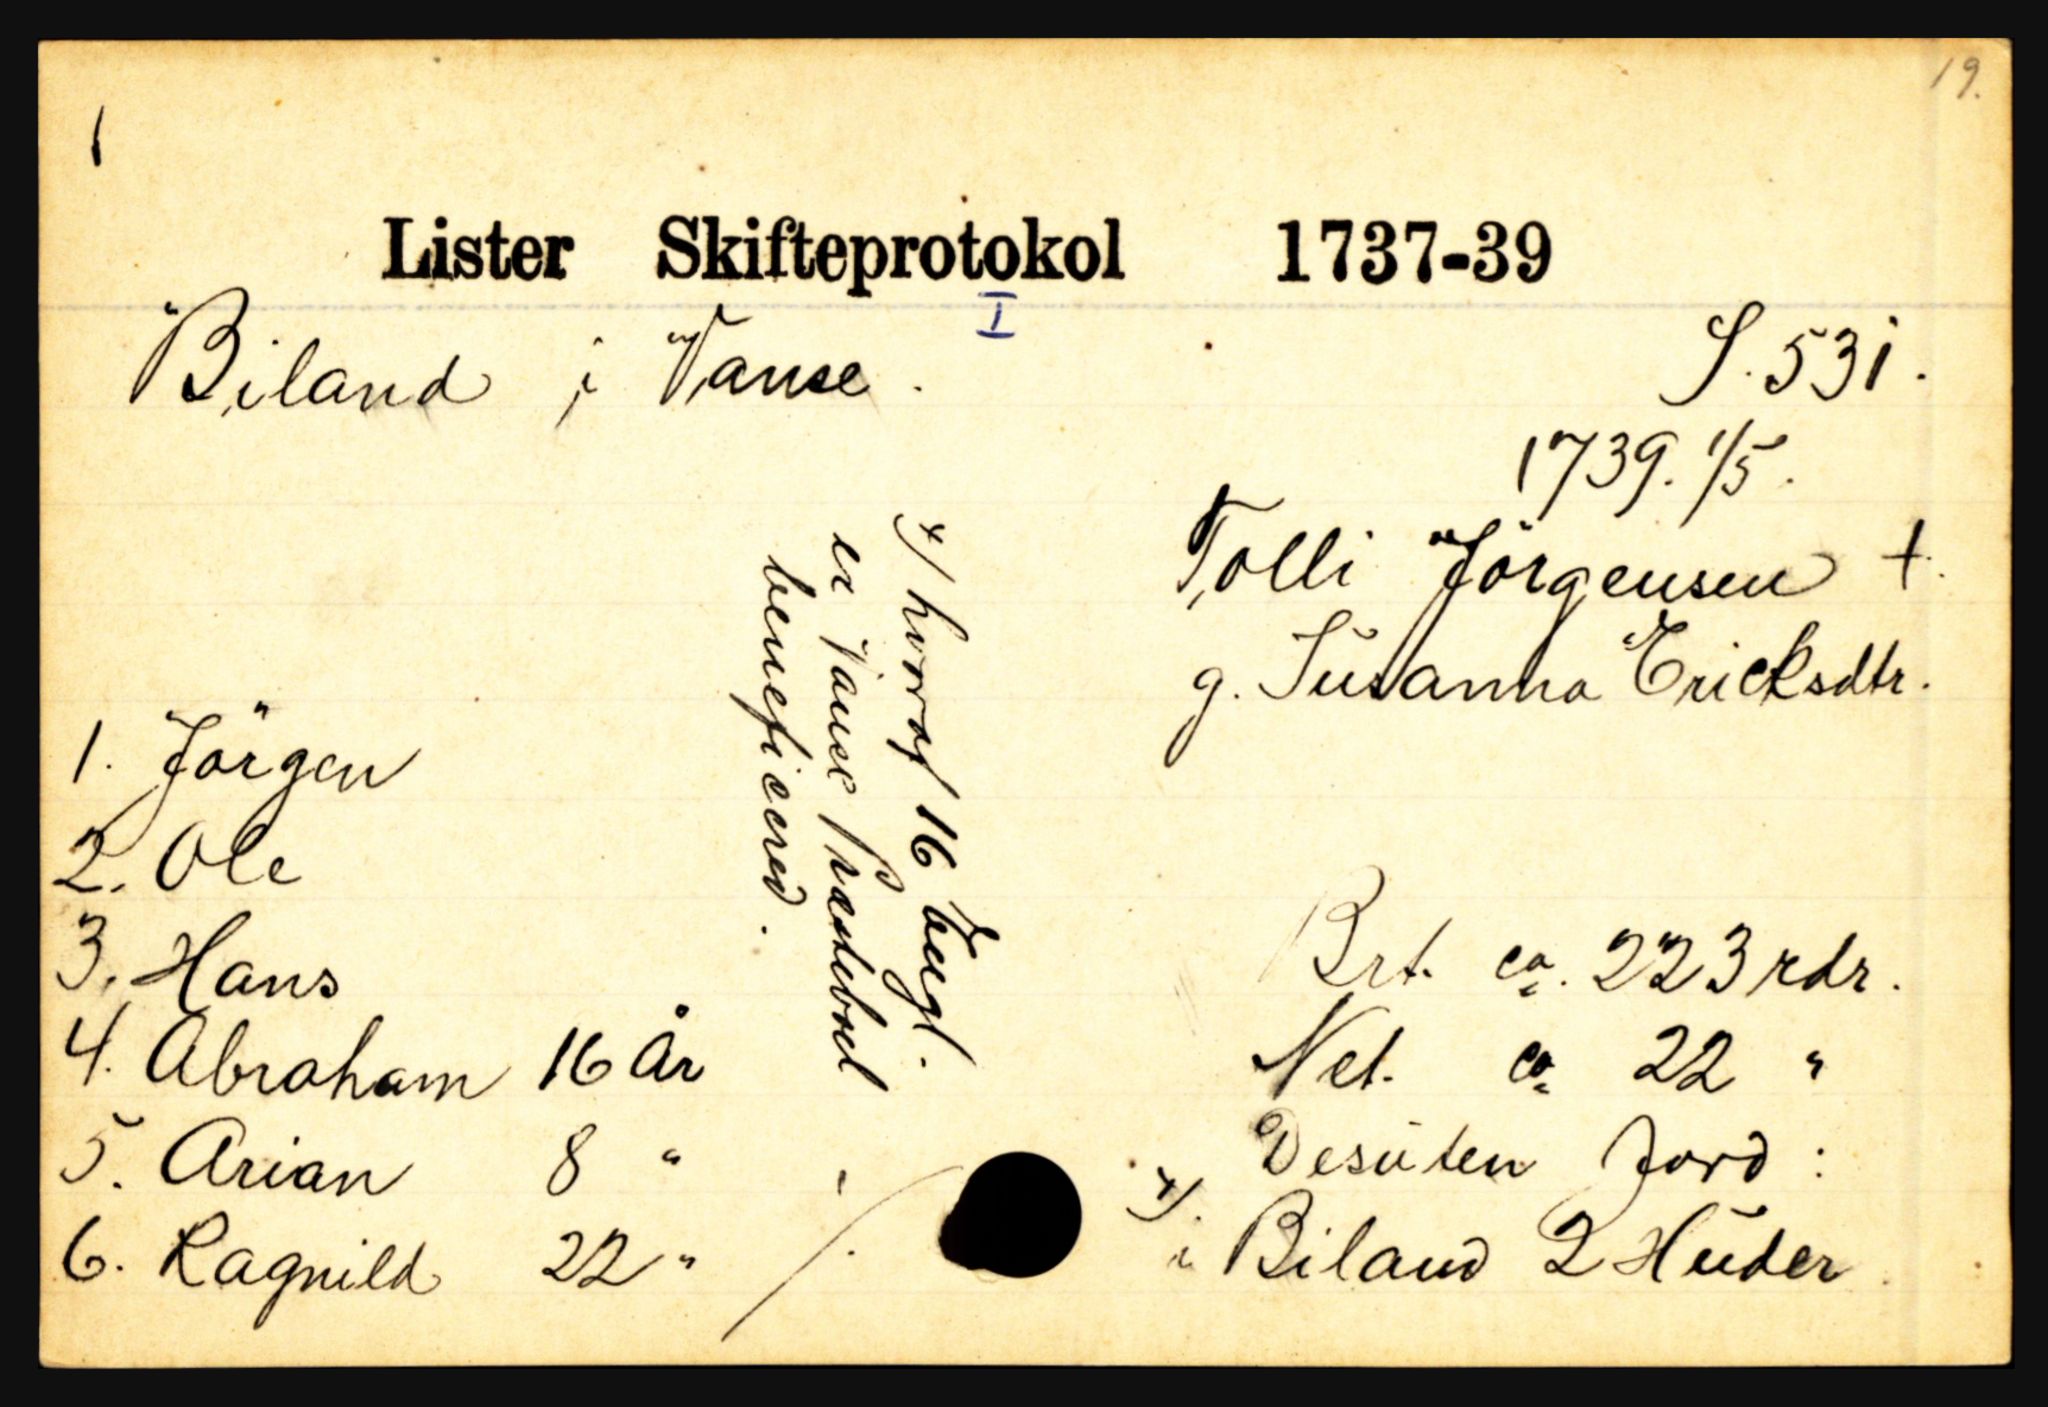 19.
1
Lister Skifteprotokol 1737-39
I
Biland i Vanse.
S. 531.
1739. 1/5.
Tolli Jörgensen †.
g. Susanna Ericksdtr.
1. Jörgen
2. Ole
3. Hans
4. Abraham 16 År
5. Arian 8 "
6. Ragnild 22 "
x) hvoraf 16 Engl.
er Vanse Præstebol
beneficered.
Brt. ca. 223 rdr.
Net. ca 22 "
Desuten Jord:
x). i Biland 2 Huder